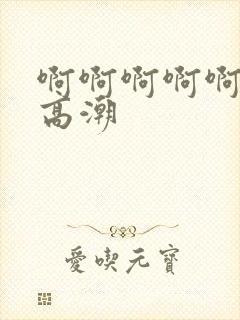 啊啊啊啊啊
高潮
愛喫元寶